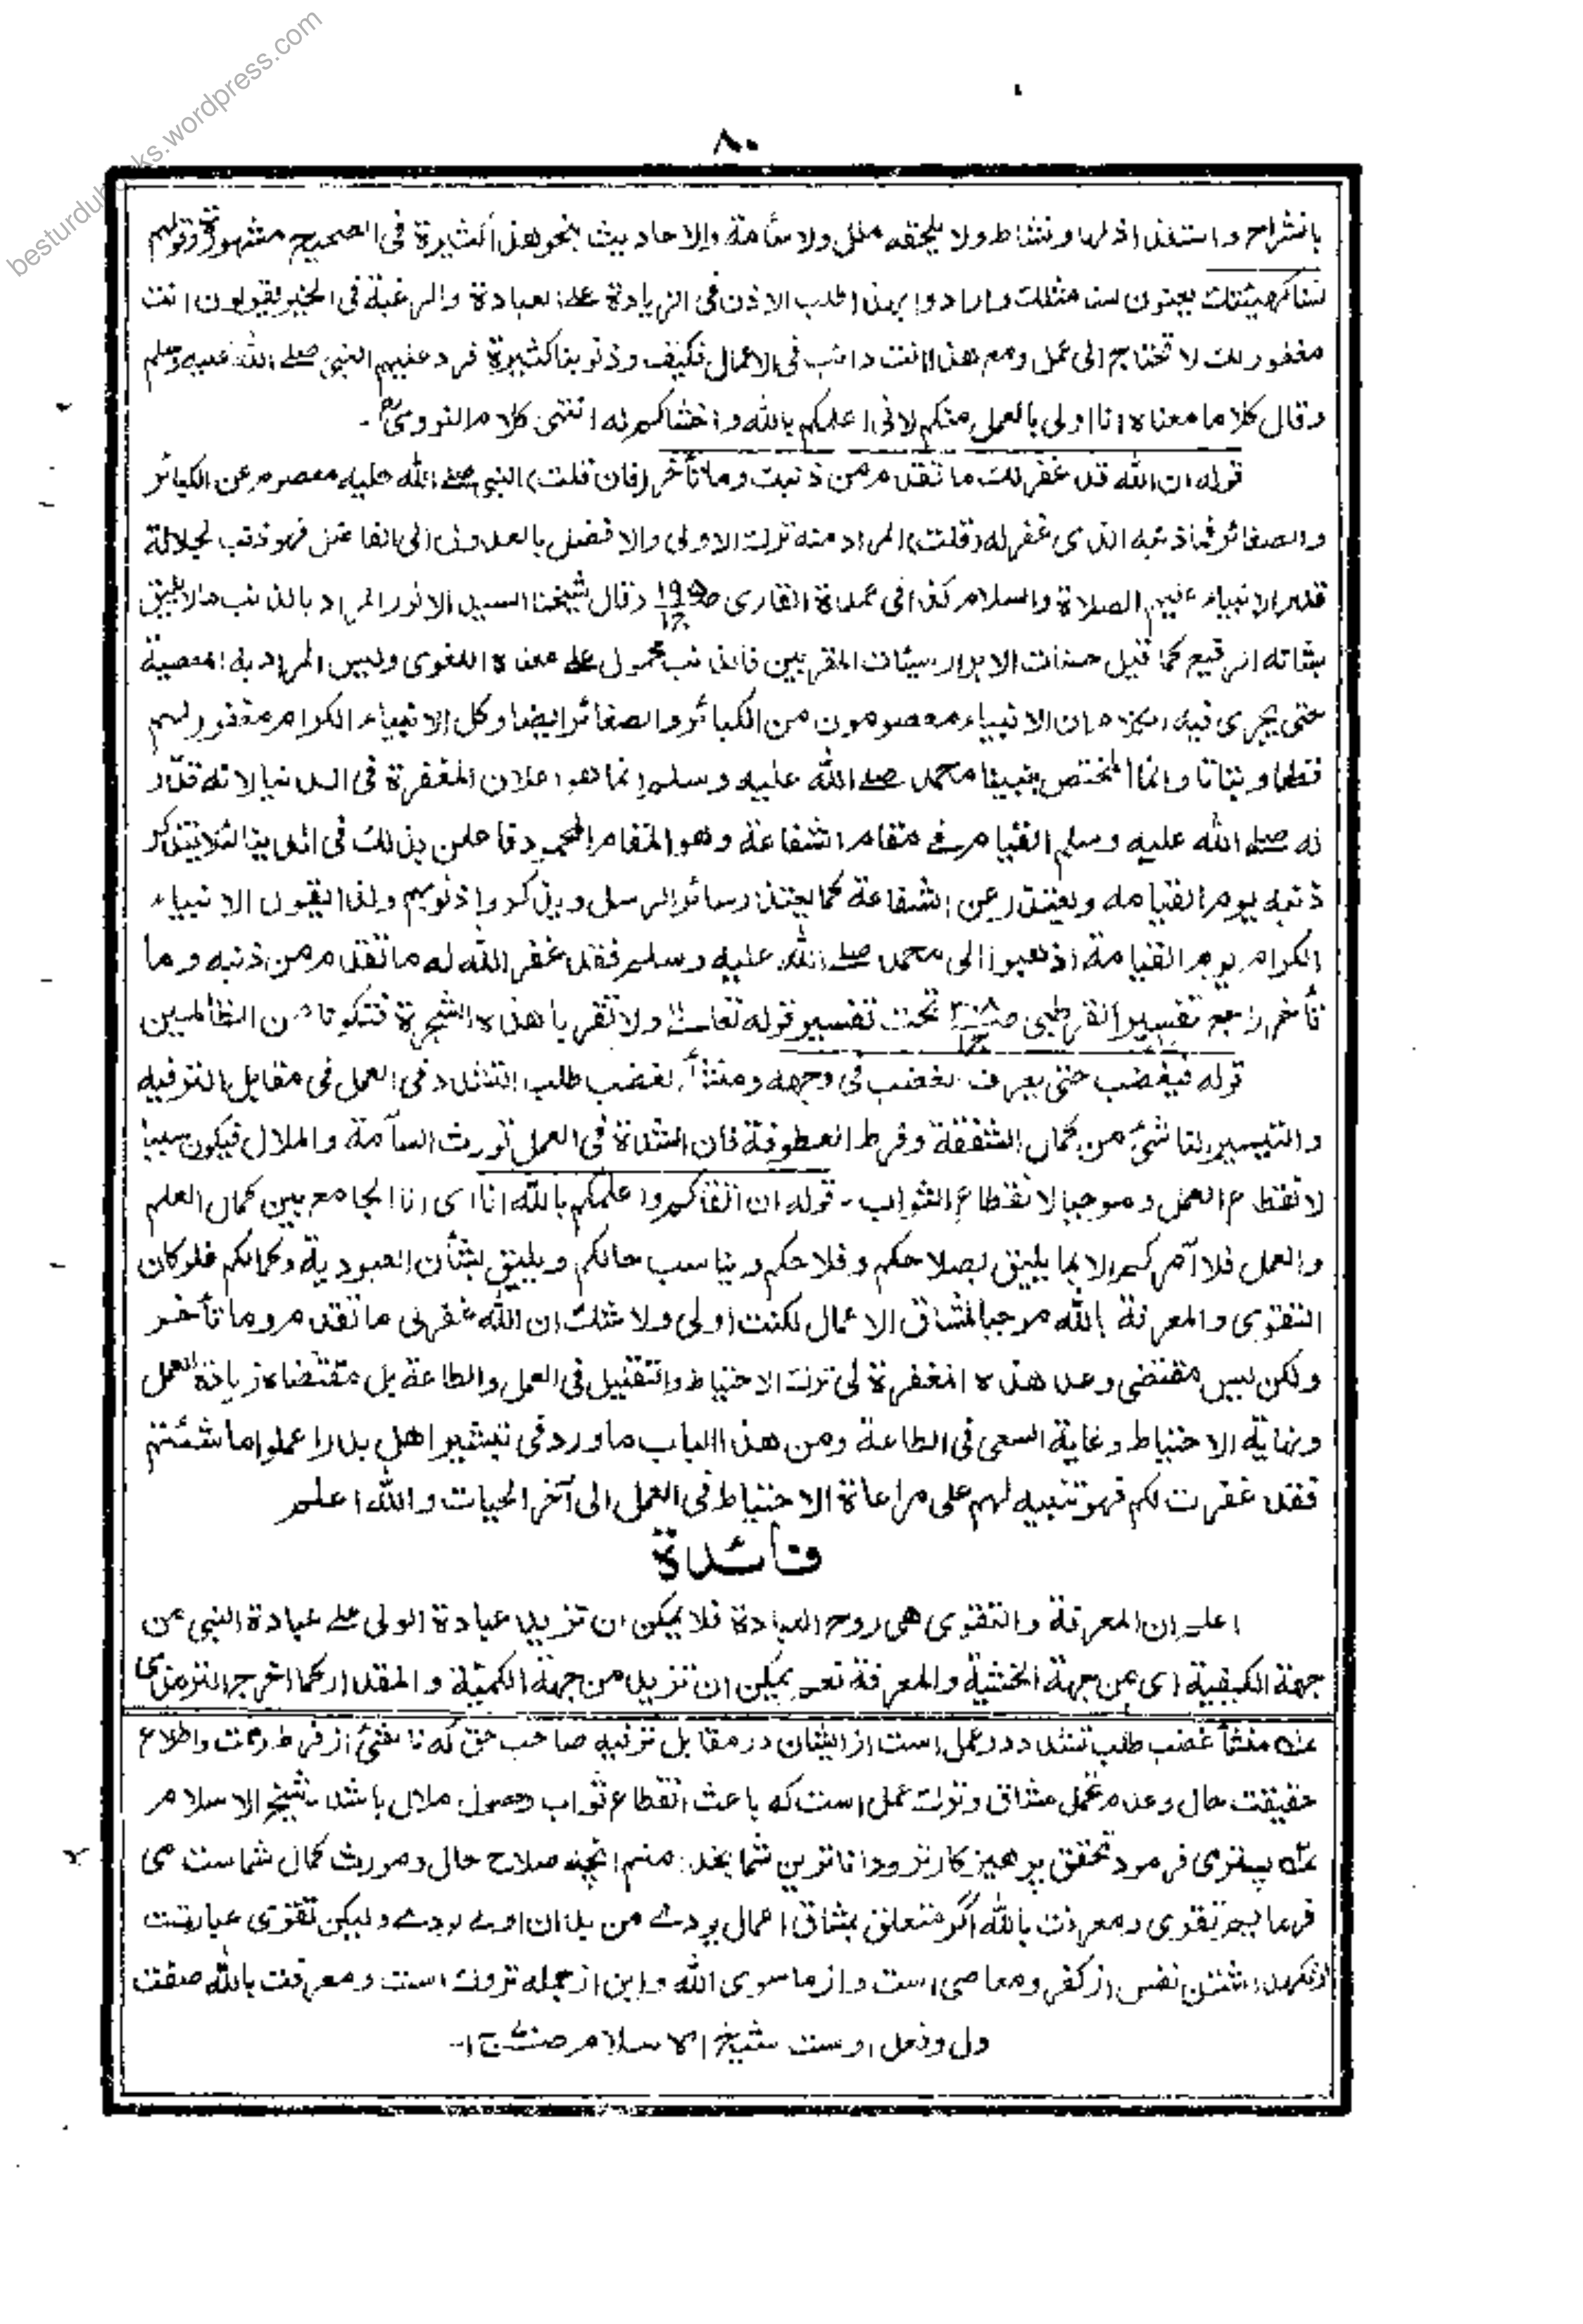 besturdubooks.wordpress.com
٨٠
بانشراح واستلذاذ لها ونشاط ولا يلحقه ملل ولا سأمة والاحاديث بنحو هذا كثيرة فى الصحيح مشهورة وقولهم
لسنا كهيئتك يعنون لسنا مثلك وارادوا بهذا طلب الاذن فى الزيادة على العبادة والرغبة فى الخير يقولون انت
مغفور لك لا تحتاج الى عمل ومع هذا انت دائب فى الاعمال فكيف وذنوبنا كثيرة فرد عليهم النبى صلے الله عليه وسلم
وقال كلاما معناه انا اولى بالعمل منكم لانى اعلمكم بالله واخشاكم له انتهى كلام النووىؒ۔
قوله ان الله قد غفر لك ما تقدم من ذنبك وما تأخر (فان قلت) النبى صلے الله عليه معصوم عن الكبائر
والصغائر فما ذنبه الذى غفر له (قلت) المراد منه ترك الاولى والافضل بالعدول الى الفاضل فهو ذنب لجلالة
قدر الانبياء عليهم الصلاة والسلام كذا فى عمدة القارى ص ١٩٥ وقال شيخنا السيد الانور المراد بالذنب ما لا يليق
بشانه الرفيع كما قيل حسنات الابرار سيئات المقربين فالذنب محمول على معناه اللغوى وليس المراد به المعصية
حتى يجرى فيه الكلام ان الانبياء معصومون من الكبائر والصغائر ايضا وكل الانبياء الكرام مغفور لهم
قطعا وبتاتا وانما المختص بنبينا محمد صلے الله عليه وسلم انما هو اعلان المغفرة فى الدنيا لانه قدّر
له صلے الله عليه وسلم القيام فے مقام الشفاعة وهو المقام المحمود فاعلن بذلك فى الدنيا لئلا يتذكر
ذنبه يوم القيامه ويعتذر عن الشفاعة كما يعتذر سائر الرسل ويذكروا ذنوبهم ولذا يقول الانبياء
الكرام يوم القيامة اذهبوا الى محمد صلے الله عليه وسلم فقد غفر الله له ما تقدم من ذنبه وما
تأخر راجع تفسير القرطبى تحت تفسير قوله تعالى ولا تقربا هذه الشجرة فتكونا من الظالمين
قوله فيغضب حتى يعرف الغضب فى وجهه ومنشأ الغضب طلب التشدد فى العمل فى مقابل الترفيه
والتيسير الناشئ من كمال الشفقة وفرط العطوفة فان الشدة فى العمل تورث السآمة والملال فيكون سببا
لانقطاع العمل وموجبا لانقطاع الثواب۔ قوله ان اتقاكم واعلمكم بالله انا اى انا الجامع بين كمال العلم
والعمل فلا آمركم الا بما يليق بصلاحكم وفلاحكم ويناسب حالكم ويليق بشأن العبودية وكمالكم فلو كان
التقوى والمعرفة بالله موجبا لمشاق الاعمال لكنت اولى ولا شك ان الله غفر لى ما تقدم وما تأخر
ولكن ليس مقتضى وعد هذه المغفرة لى ترك الاحتياط والتقليل فى العمل والطاعة بل مقتضاه زيادة العمل
ونهاية الاحتياط وغاية السعى فى الطاعة ومن هذا الباب ما ورد فى تبشير اهل بدر اعملوا ما شئتم
فقد غفرت لكم فهو تنبيه لهم على مراعاة الاحتياط فى العمل الى آخر الحيات والله اعلم
فائدة
اعلم ان المعرفة والتقوى هى روح العبادة فلا يمكن ان تزيد عبادة الولى على عبادة النبى من
جهة الكيفية اى من جهة الخشية والمعرفة نعم يمكن ان تزيد من جهة الكمية والمقدار كما اخرج الترمذى
عــه منشأ غضب طلب تشدد در عمل است از ايشان در مقابل ترفيه صاحب حق كه ناشئ از فرط رحمت واطلاع
حقيقت حال وعدم تحمل مشاق وترك عمل است كه باعث انقطاع ثواب وحصول ملال باشد شيخ الاسلام
عــه پيغمبر فرمود تحقق پرهيز كارتر وداناترين شما بخدا منم آنچه صلاح حال ومورث كمال شماست مى
فرمايم تقوى ومعرفت بالله اگر متعلق بمشاق اعمال بودے من بدان اولے بودے وليكن تقوى عبارتست
از نگهداشتن نفس از كفر ومعاصى است واز ما سوى الله واين از جمله تروك است ومعرفت بالله صفت
دل وفعل اوست شيخ الاسلام